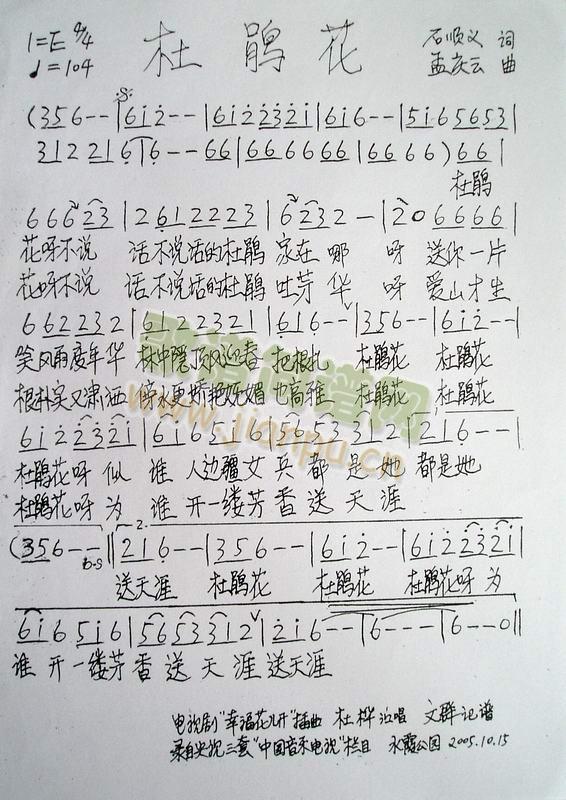 1=E 4/4 杜鹃花 石顺义 词
♩=104 孟庆云 曲
(356--|6i2--|6i22321|6i6--|5i65653|
3122167|6--66|666666|6666)66|
杜鹃
66623|2612223|6232-|206666|
花呀不说 话不说话的杜鹃 家在哪 呀 送你一片
花呀不说 话不说话的杜鹃 吐芽华 呀 爱山才生
662232|6122321|616--|356--|6i2--|
笑风雨度年华 林中 顶风迎春 把根扎 杜鹃花 杜鹃花
根朴实又潇洒 傍水更娇艳妩媚 也高雅 杜鹃花 杜鹃花
杜鹃花呀 似 谁 人边疆女兵都是她 都是她
杜鹃花呀 为 谁 开一缕芳香送天涯
(356--||216--|356--|6i2--|6i22321|
D.S
送天涯 杜鹃花 杜鹃花 杜鹃花呀 为
6i65i6|5653312|2i6--|6---|6--0||
谁 开一缕芳香送天涯 送天涯
电视剧"幸福花儿开"插曲 杜桦 演唱 文群 记谱
录自央视三套"中国音乐电视"栏目 永霞公园 2005.10.15
www.jianpu.cn